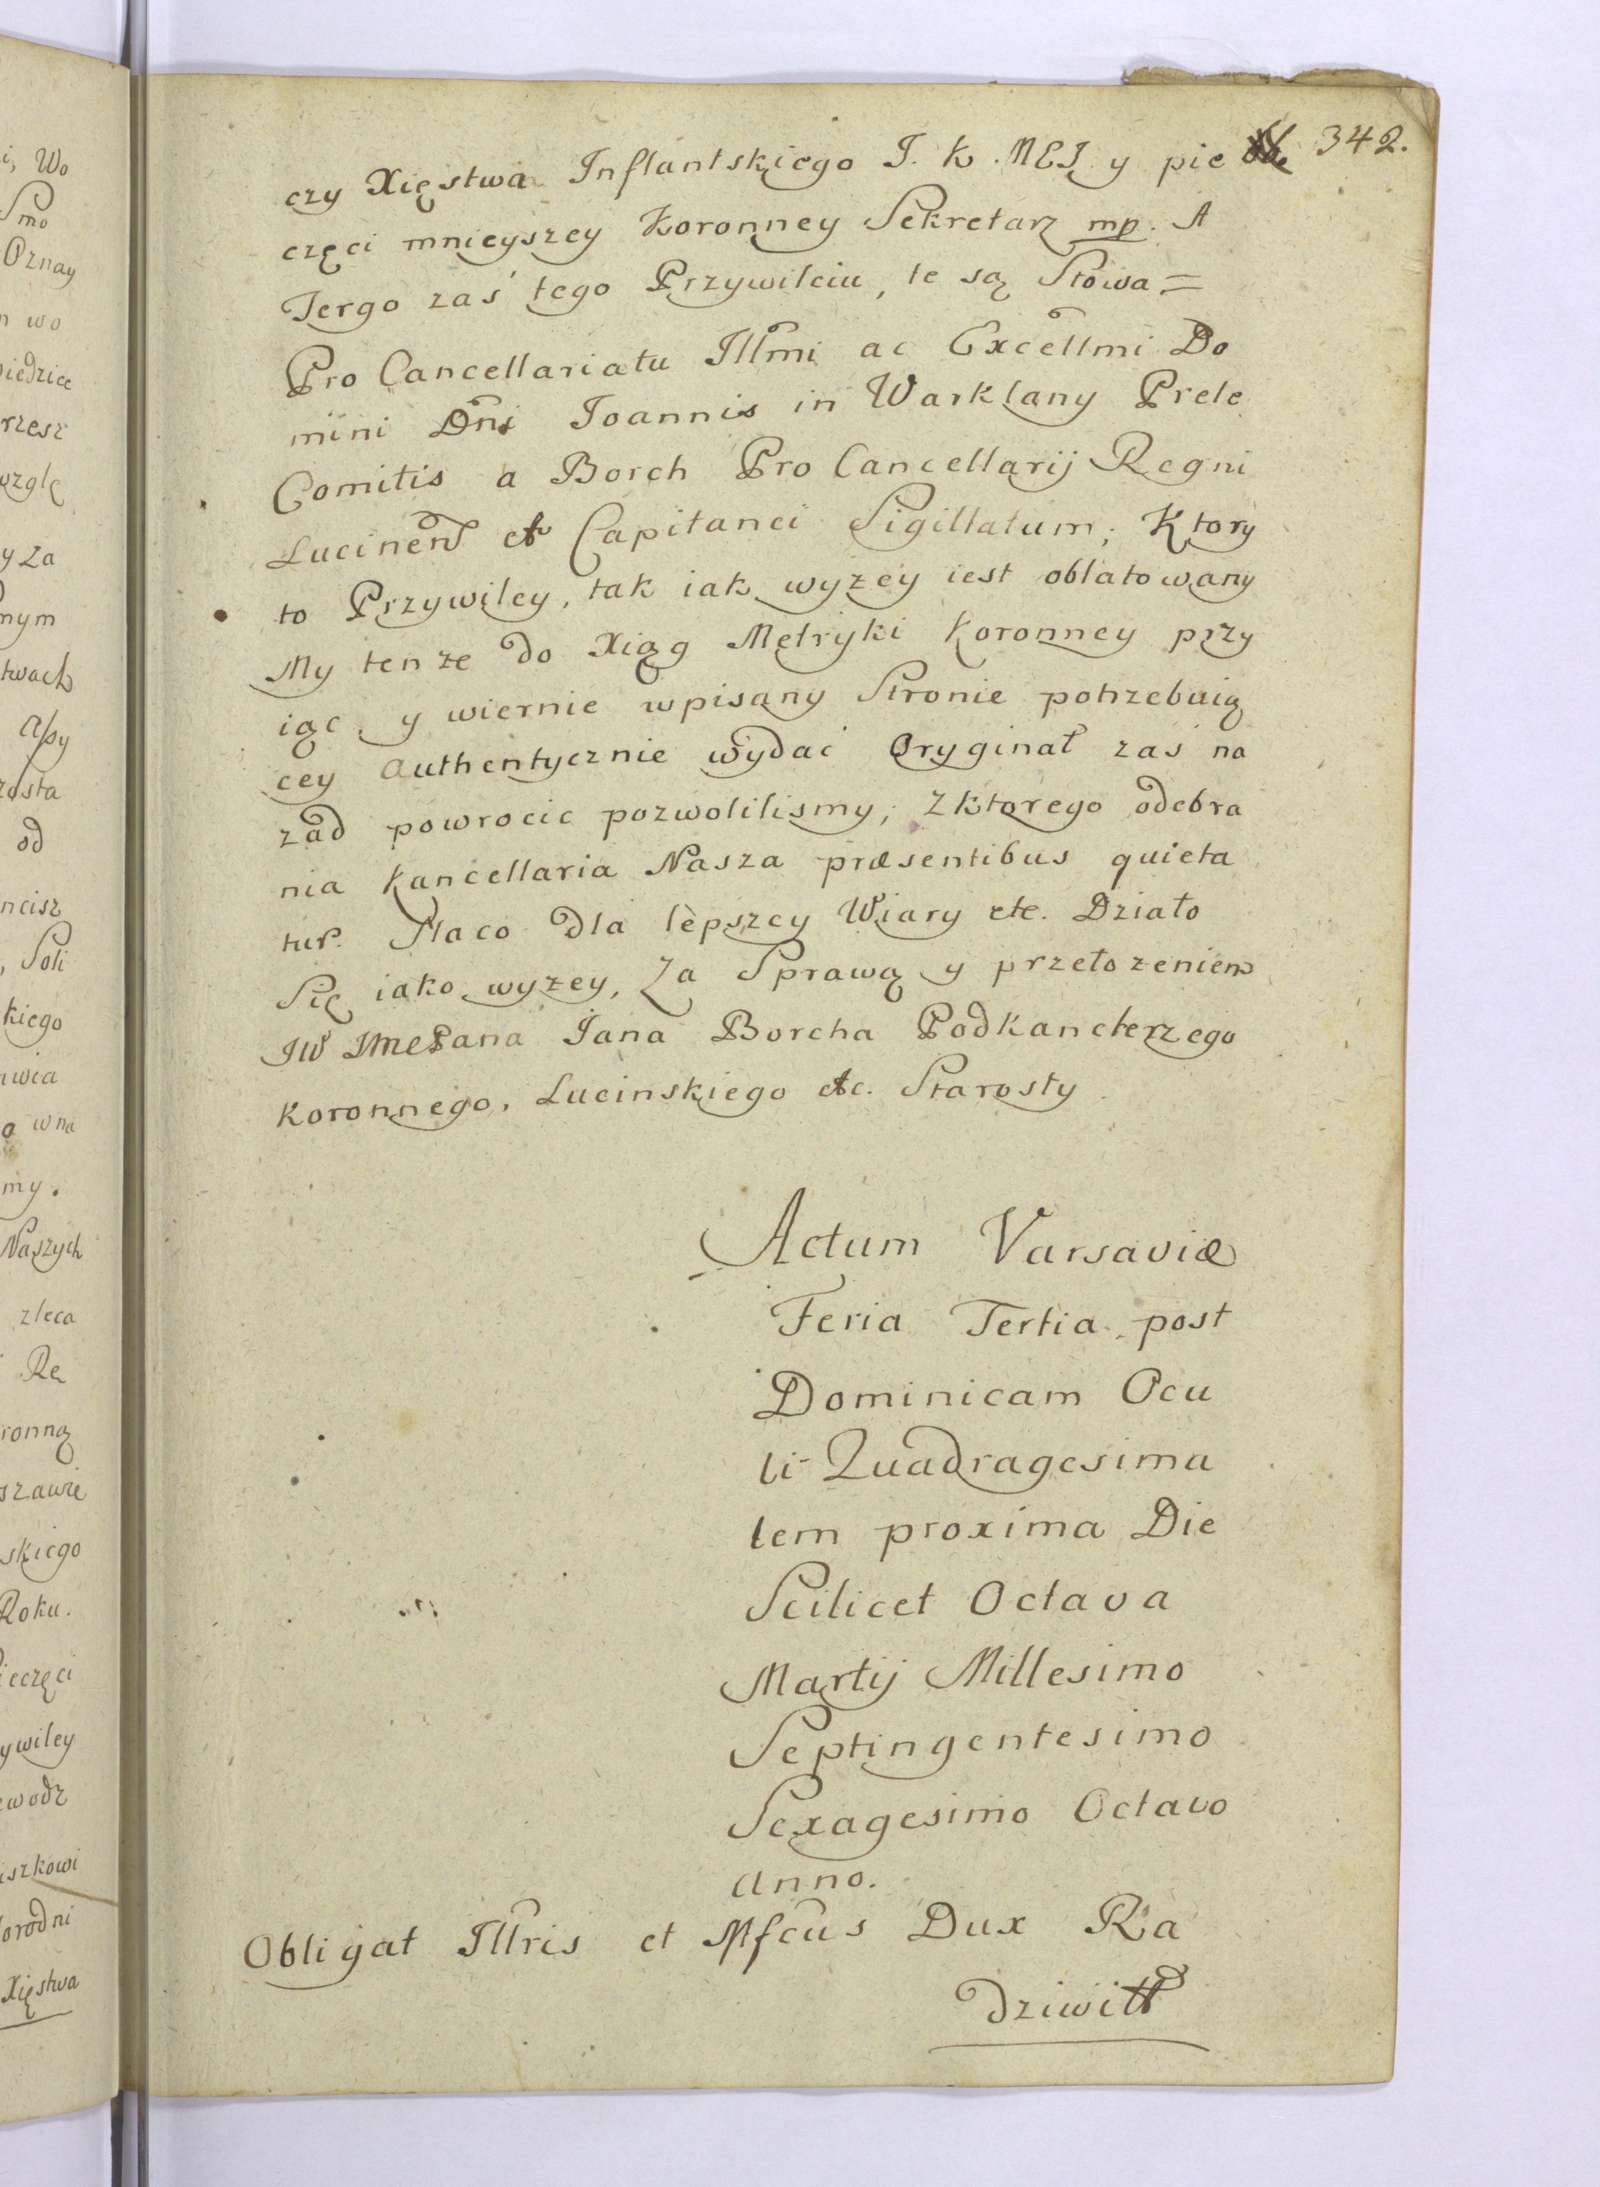 342.
czy Xięstwa Inflantskiego J. K. MCI y pie
częci mnieyszey Koronney Sekretarz mp. A
Tergo zaś tego Przywileiu, te są Słowa =
Pro Cancellariatu Illmi ac Excellmi Do
mini Dni Joannis in Warklany Prele
Comitis a Borch Pro Cancellarij Regni
Lucinen et Capitanei Sigillatum; Ktory
to Przywiley, tak iak wyzey iest oblatowany
My tenze do Xiąg Metryki Koronney przy
iąc y wiernie wpisany Stronie potrzebuią
cey Authentycznie wydać Oryginał zaś na
zad powrocic pozwolilismy, Zktorego odebra
nia Kancellaria Nasza præsentibus quieta
tur. Naco dla lepszey Wiary etc. Działo
Się iako wyzey, Za Sprawą y przełozeniem
JW JmcPana Jana Borcha Podkanclerzego
Koronnego, Lucinskiego etc. Starosty
Actum Varsaviæ
Feria Tertia post
Dominicam Ocu
li Quadragesima
lem proxima Die
Scilicet Octava
Martij Millesimo
Septingentesimo
Sexagesimo Octavo
Anno.
Obligat Illris et Mfcus Dux Ra
dziwiłł
i, Wo
Smo
Oznay
n wo
iedzice
rzesz
wzglę
y za
nym
twach
Aby
zosta
od
ncisz
, Soli
kiego
iwia
o wna
my.
Naszych
zleca
Rę
ronną
szawie
skiego
Roku.
ieczęci
ywiley
ewodz
iszkowi
orodni
Xięstwa